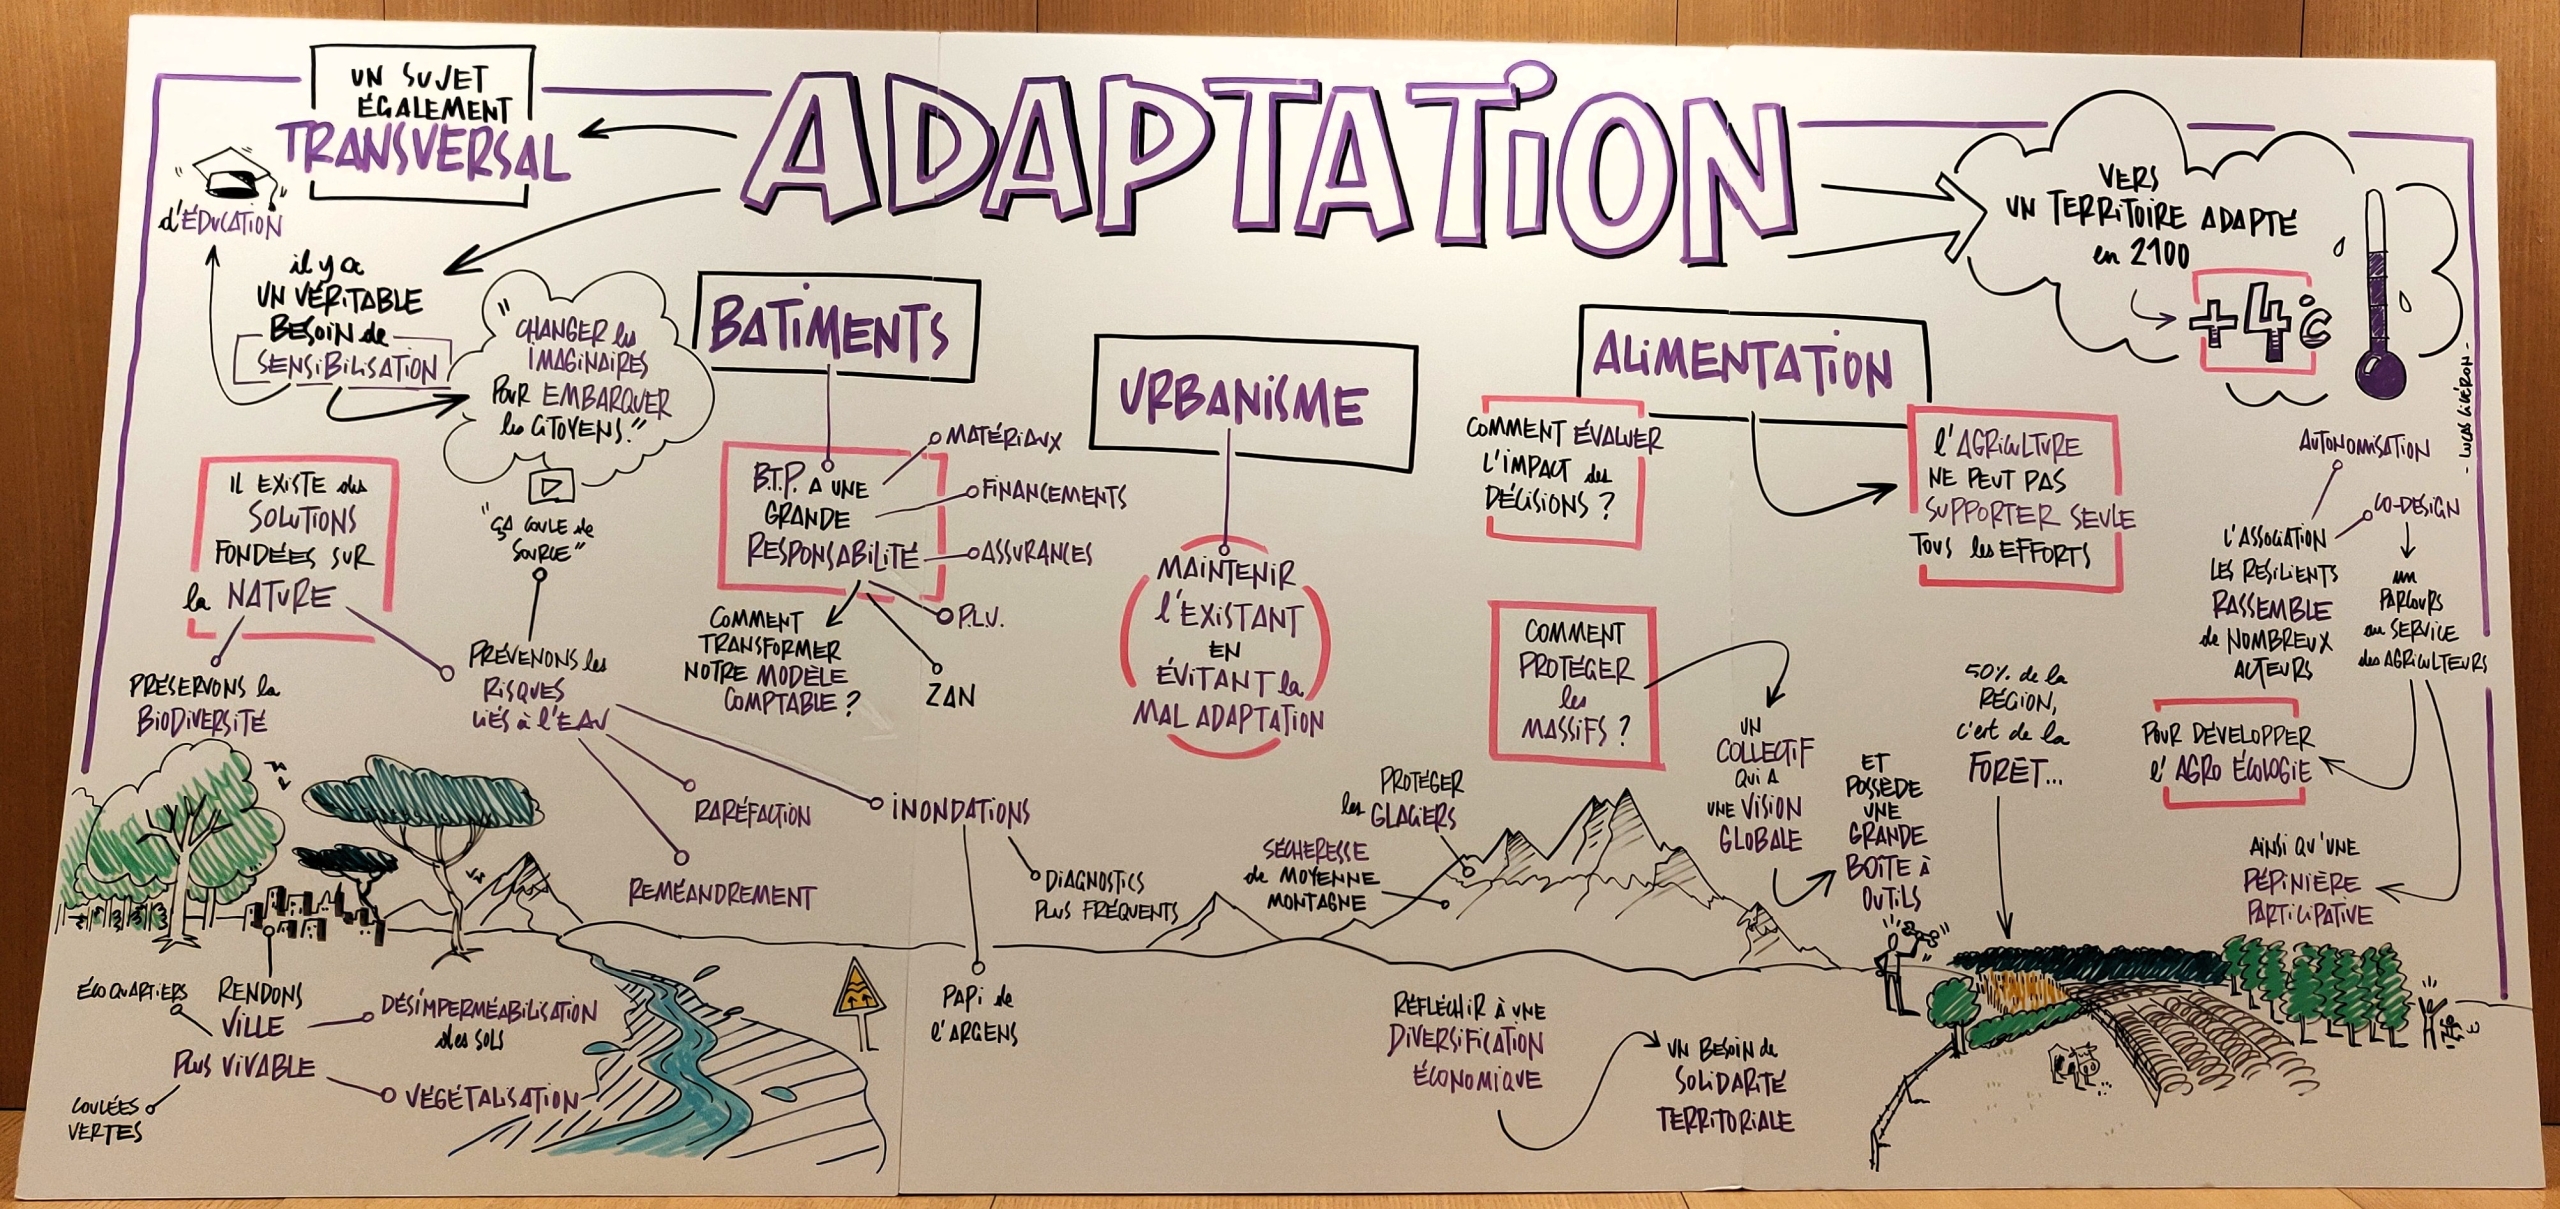 UN SUJET
ÉGALEMENT
TRANSVERSAL
ADAPTATION
VERS
UN TERRITOIRE ADAPTÉ
en 2100
+4°C
d'ÉDUCATION
il y a
UN VÉRITABLE
BESOIN de
SENSIBILISATION
"CHANGER les
IMAGINAIRES
POUR EMBARQUER
les CITOYENS."
"ÇA COULE de
SOURCE"
IL EXISTE des
SOLUTIONS
FONDÉES SUR
la NATURE
PRÉSERVONS la
BIODIVERSITÉ
PRÉVENONS les
RISQUES
LIÉS à l'EAU
RARÉFACTION
REMÉANDREMENT
INONDATIONS
DIAGNOSTICS
PLUS FRÉQUENTS
PAPI de
l'ARGENS
ÉCOQUARTIERS
RENDONS
VILLE
PLUS VIVABLE
DÉSIMPERMÉABILISATION
des SOLS
VÉGÉTALISATION
COULÉES
VERTES
BATIMENTS
B.T.P. A UNE
GRANDE
RESPONSABILITÉ
MATÉRIAUX
FINANCEMENTS
ASSURANCES
P.L.U.
ZAN
COMMENT
TRANSFORMER
NOTRE MODÈLE
COMPTABLE ?
URBANISME
MAINTENIR
l'EXISTANT
EN
ÉVITANT la
MAL ADAPTATION
ALIMENTATION
COMMENT ÉVALUER
L'IMPACT des
DÉCISIONS ?
l'AGRICULTURE
NE PEUT PAS
SUPPORTER SEULE
TOUS les EFFORTS
COMMENT
PROTÉGER
les
MASSIFS ?
UN
COLLECTIF
QUI A
UNE VISION
GLOBALE
ET
POSSÈDE
UNE
GRANDE
BOITE À
OUTILS
PROTÉGER
les GLACIERS
SÉCHERESSE
de MOYENNE
MONTAGNE
RÉFLÉCHIR À UNE
DIVERSIFICATION
ÉCONOMIQUE
UN BESOIN de
SOLIDARITÉ
TERRITORIALE
50% de la
RÉGION,
c'est de la
FORÊT...
AUTONOMISATION
CO-DESIGN
L'ASSOCIATION
LES RÉSILIENTS
RASSEMBLE
de NOMBREUX
ACTEURS
un
PARCOURS
au SERVICE
des AGRICULTEURS
POUR DÉVELOPPER
l'AGRO ÉCOLOGIE
AINSI QU'UNE
PÉPINIÈRE
PARTICIPATIVE